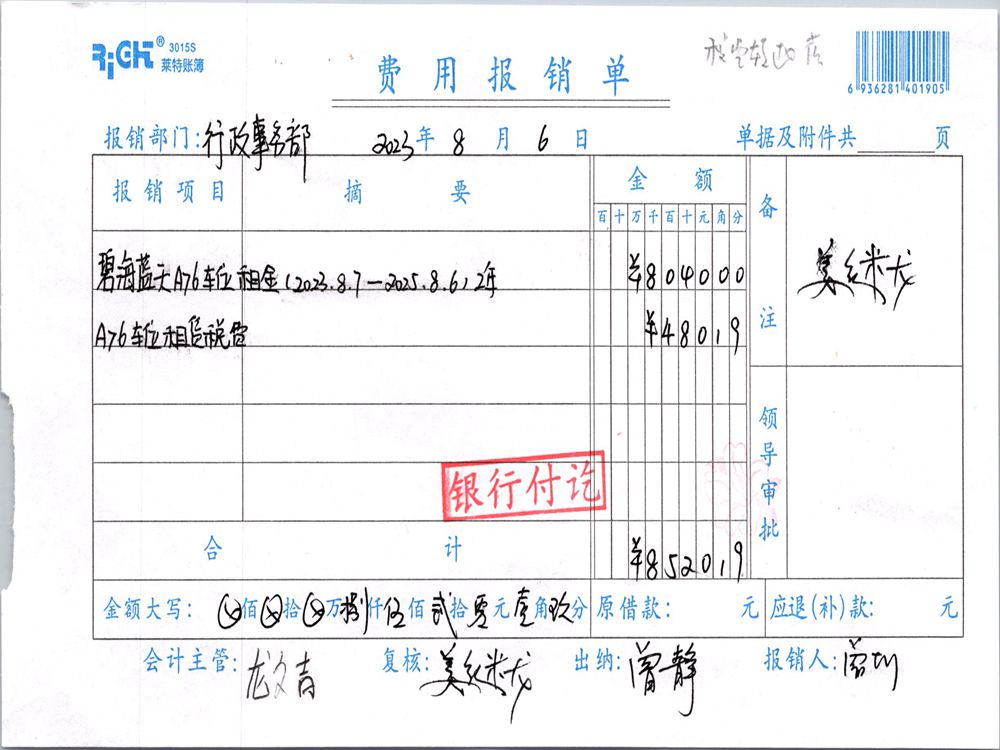 RiGHT® 3015S 莱特账簿
费用报销单
6 936281 401905
报销部门:行政事务部 2023年8月6日 单据及附件共 页
报销项目 摘要 金额 备注
百十万千百十元角分
碧海蓝天A76车位租金(2023.8.7—2025.8.6)2年 ¥804000
A76车位租赁税费 ¥48019
银行付讫
领导审批
合计 ¥852019
金额大写: 佰 拾 万捌仟伍佰贰拾零元壹角玖分 原借款: 元 应退(补)款: 元
会计主管:龙文吉 复核: 出纳:曾静 报销人: